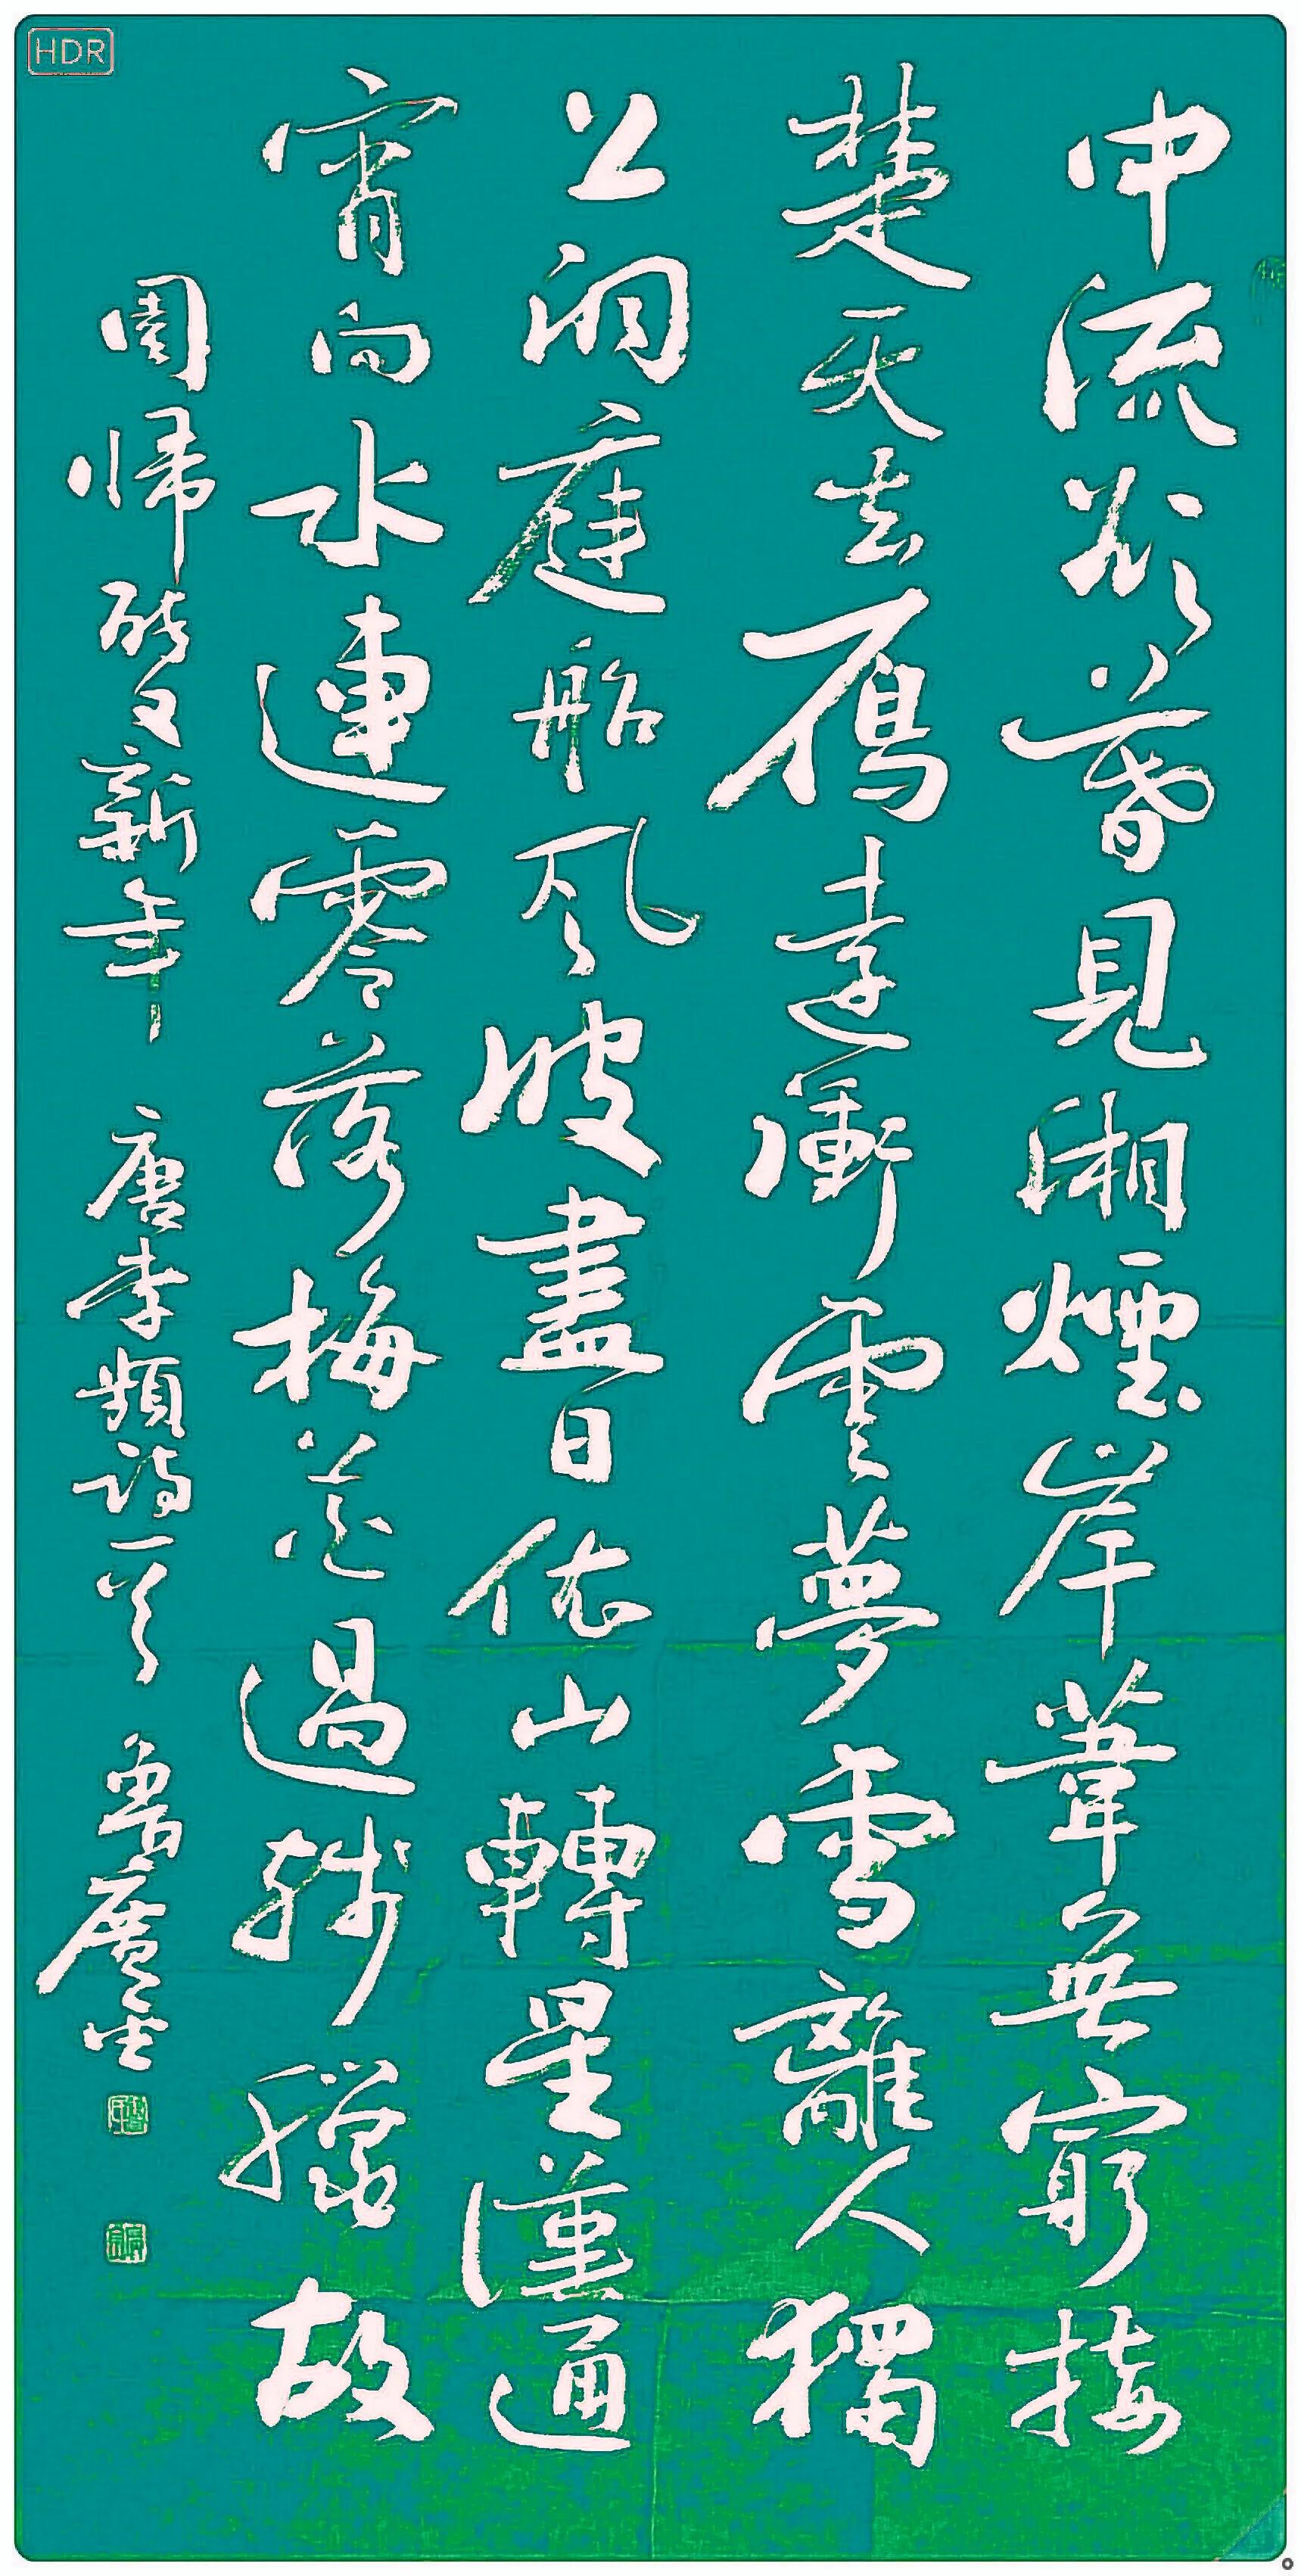 HDR
中流欲暮見湘煙岸葦無窮接
楚天去鴈遠衝雲夢雪離人獨
上洞庭船風波盡日依山轉星漢通
宵向水連零落梅花過殘臘故
園歸醉又新年 唐李頻詩一首 魯